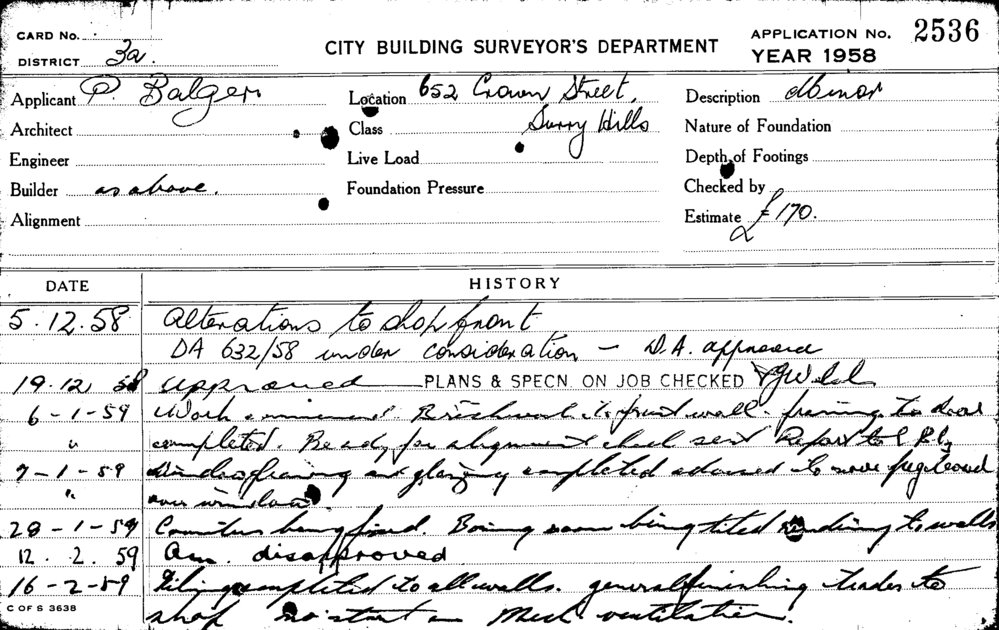 CARD No.
DISTRICT 3a.
CITY BUILDING SURVEYOR'S DEPARTMENT
APPLICATION No. 2536
YEAR 1958
Applicant P. Balger
Location 652 Crown Street,
Surry Hills
Description Minor
Architect
Class
Nature of Foundation
Engineer
Live Load
Depth of Footings
Builder as above.
Foundation Pressure
Checked by
Alignment
Estimate £170.
DATE HISTORY
5.12.58 Alterations to shop front
DA 632/58 under consideration — D.A. approved
19.12 58 approved PLANS & SPECN. ON JOB CHECKED
6-1-59 Work Brickwork to front wall. framing to door
" completed. Ready for alignment check sent Report to
7-1-59 framing and glazing completed advised to move
" over window.
28-1-59 Counter being fixed. Boning room being tiled rendering to walls
12.2.59 Am. disapproved
16-2-59 Tiling completed to all walls. general finishing trades to
shop no start on Mech ventilation.
C OF S 3638